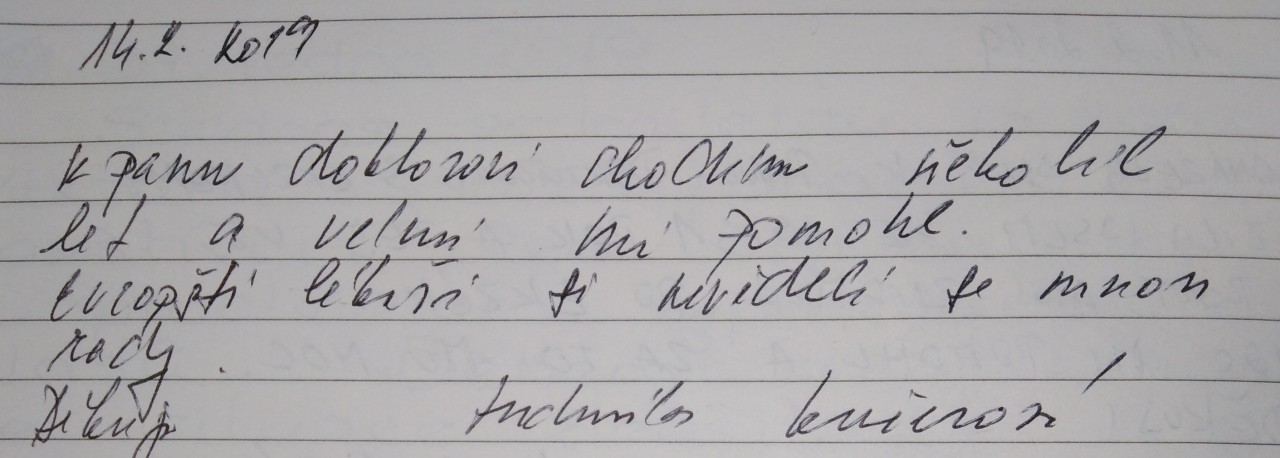 14.2. 2019
k panu doktorovi chodím několik
let a velmi mi pomohl.
Evropští lékaři si nevěděli se mnou
rady.
Děkuji Ludmila